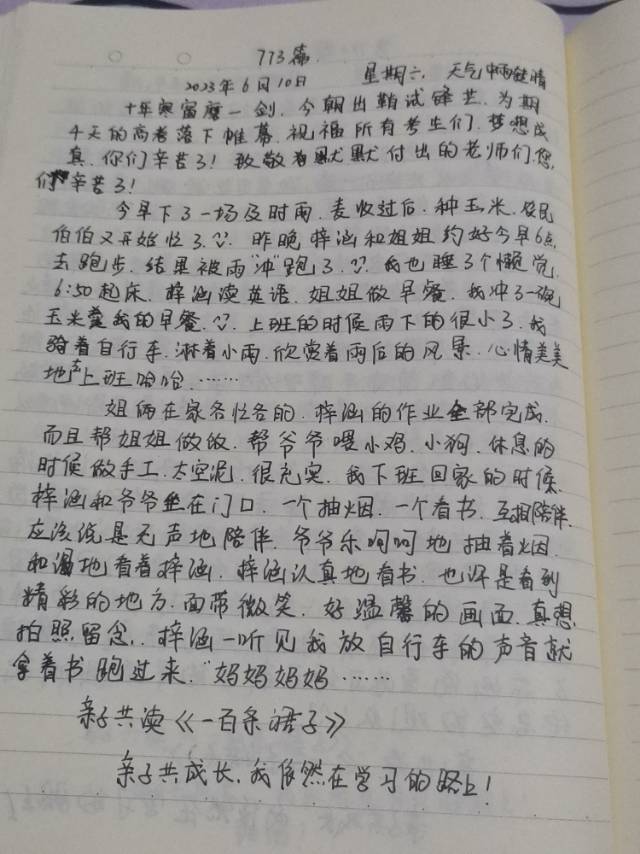 773篇
2023年6月10日 星期六 天气中雨转晴
十年寒窗磨一剑,今朝出鞘试锋芒.为期
4天的高考落下帷幕.祝福所有考生们.梦想成
真.你们辛苦了!致敬着默默付出的老师们,您
们辛苦了!
今早下了一场及时雨.麦收过后.种玉米.农民
伯伯又开始忙了.昨晚梓涵和姐姐约好今早6点
去跑步.结果被雨"冲"跑了.我也睡了个懒觉.
6:50起床.梓涵读英语.姐姐做早餐.我冲了一碗
玉米羹我的早餐.上班的时候雨下的很小了.我
骑着自行车.淋着小雨.欣赏着雨后的风景.心情美美
地上班哈哈......
姐俩在家各忙各的.梓涵的作业全部完成.
而且帮姐姐做饭.帮爷爷喂小鸡.小狗.休息的
时候做手工.太空泥.很充实.我下班回家的时候.
梓涵和爷爷坐在门口.一个抽烟.一个看书.互相陪伴.
应该说是无声地陪伴.爷爷乐呵呵地抽着烟.
和蔼地看着梓涵.梓涵认真地看书.也许是看到
精彩的地方.面带微笑.好温馨的画面.真想
拍照留念..梓涵一听见我放自行车的声音就
拿着书跑过来."妈妈妈妈......
亲子共读《一百条裙子》
亲子共成长.我依然在学习的路上!